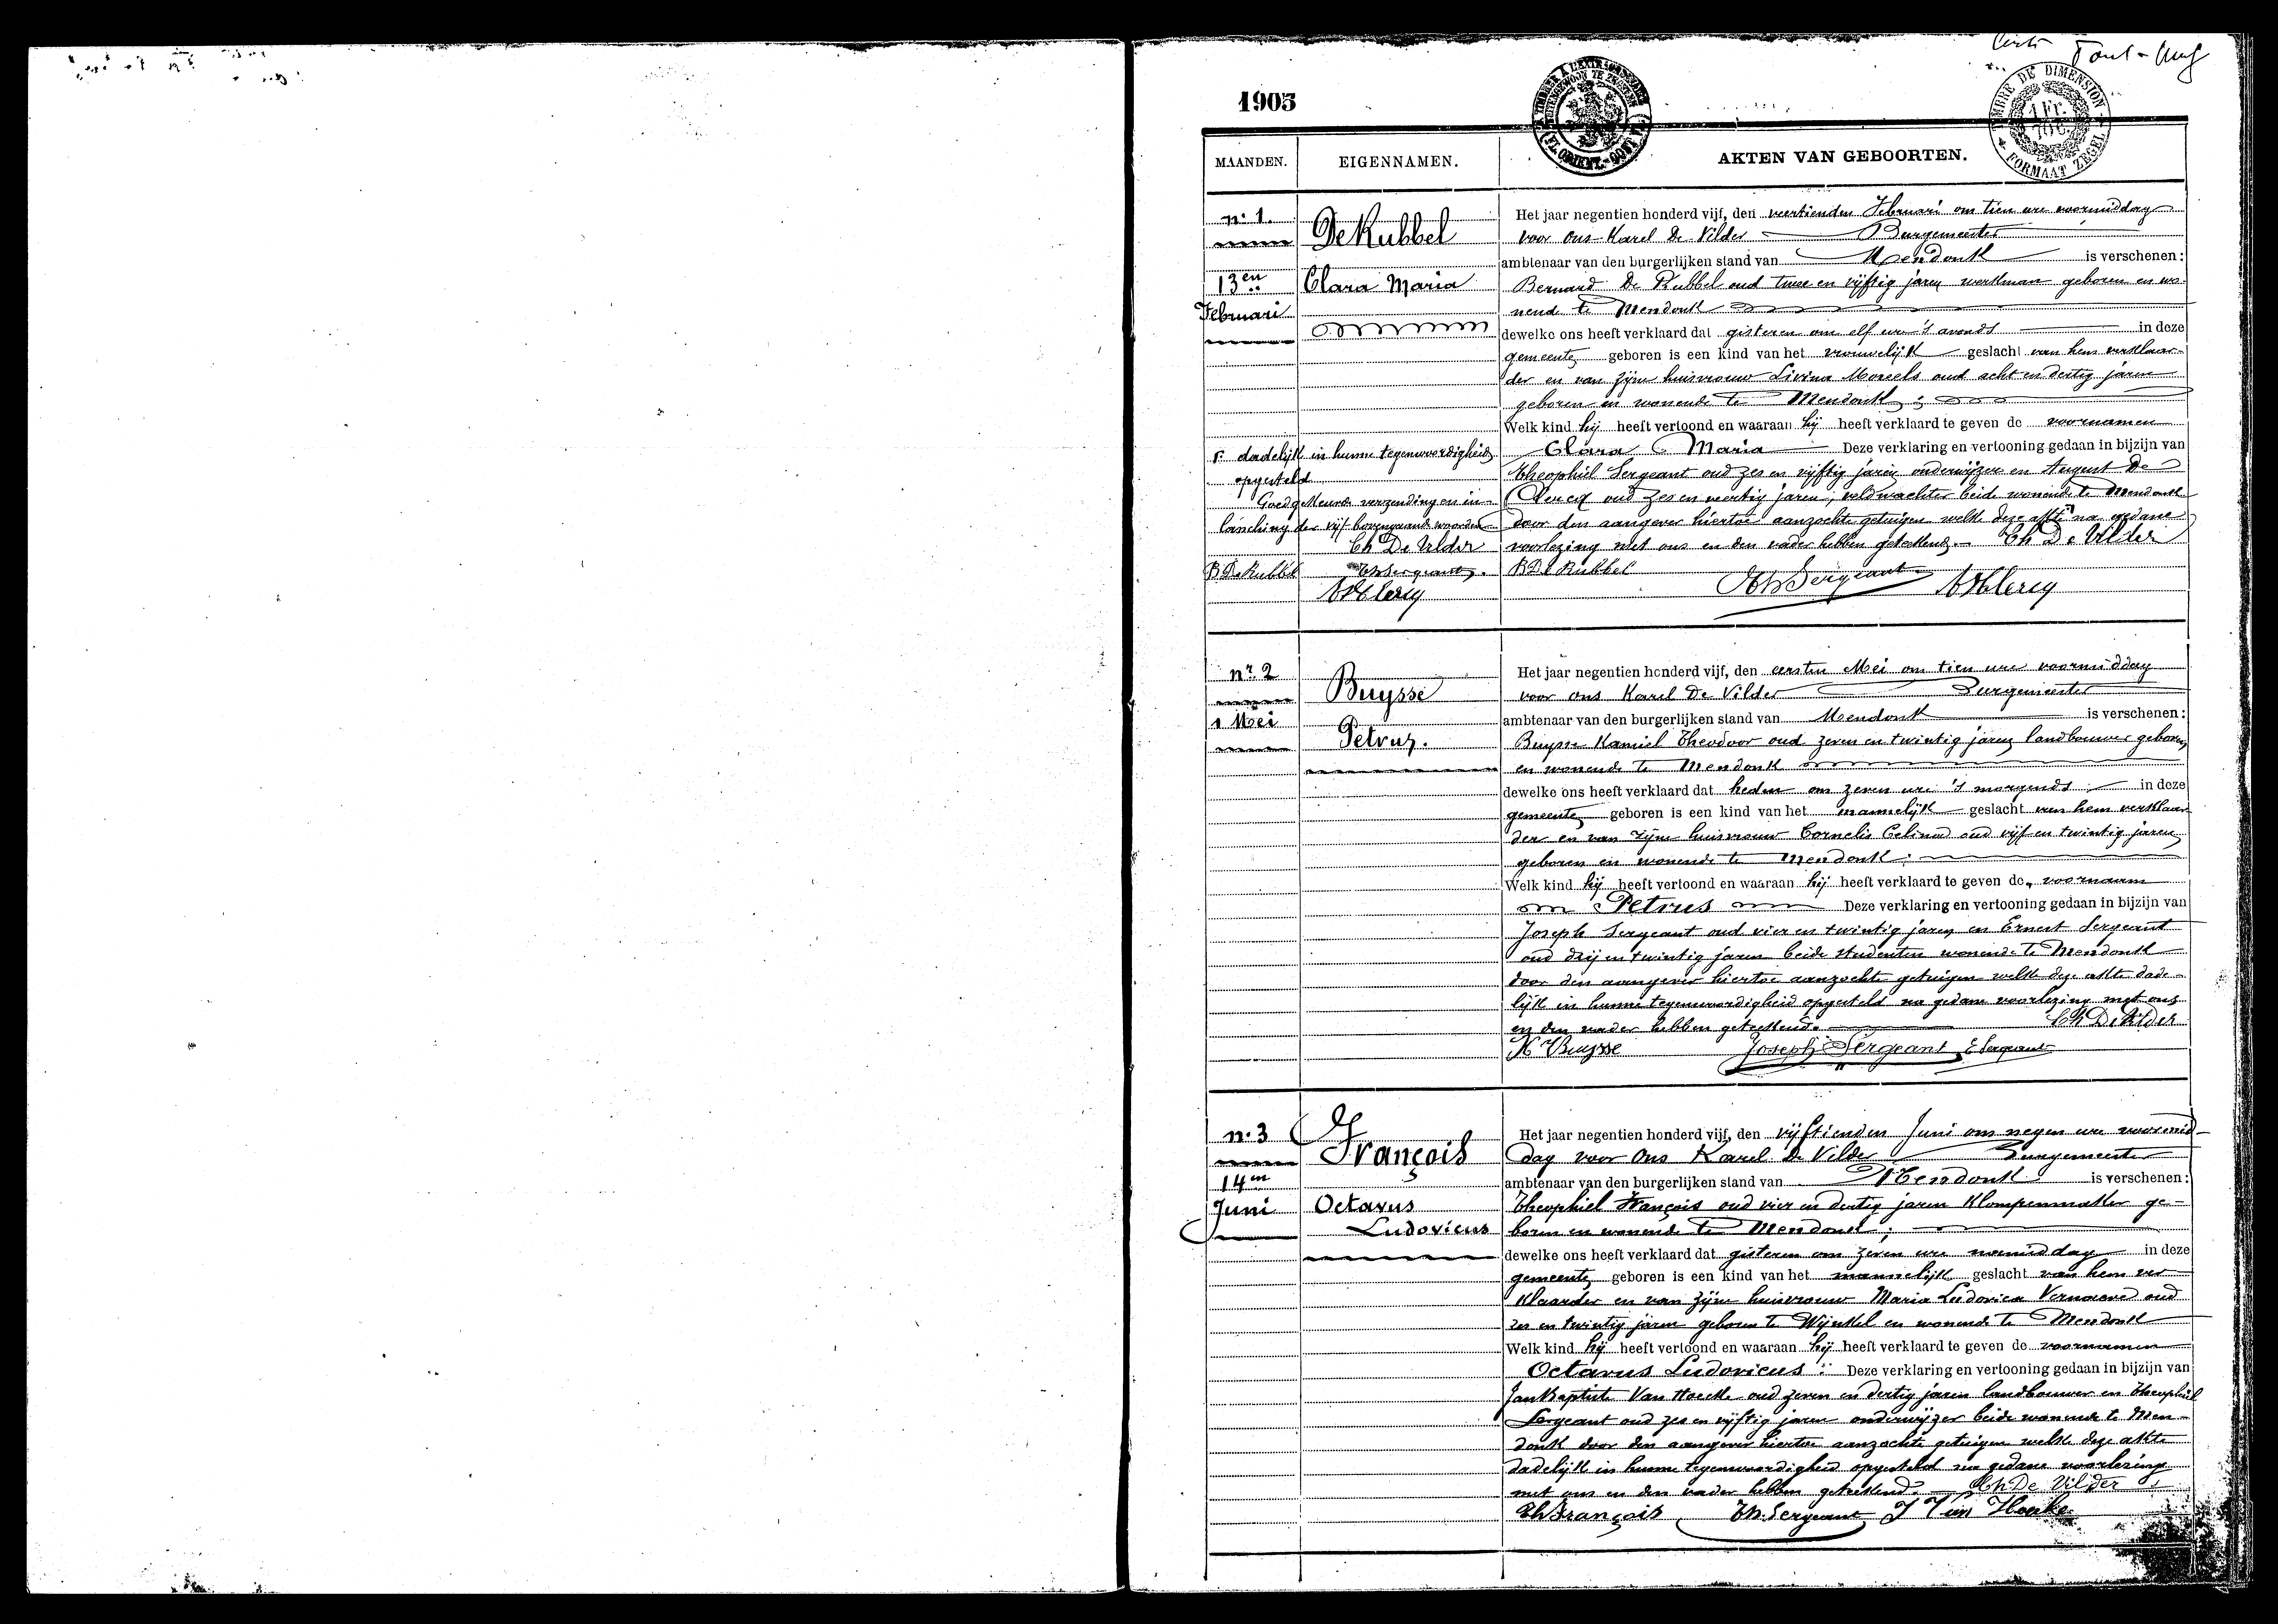 Tout-Neuf
1905
TIMBRE DE DIMENSION
1 FR.
FORMAAT ZEGEL
MAANDEN.
EIGENNAMEN.
AKTEN VAN GEBOORTEN.
n: 1.
De Kubbel
13en
Februari
Clara Maria
Het jaar negentien honderd vijf, den veertienden Februari om tien ure voormiddag
voor ons Karel De Vilder Burgemeester
ambtenaar van den burgerlijken stand van Mendonk is verschenen:
Bernard De Kubbel oud twee en vijftig jaren werkman geboren en wo-
nend te Mendonk
dewelke ons heeft verklaard dat gisteren om elf ure 's avonds in deze
gemeente geboren is een kind van het vrouwelijk geslacht van hem verklaar-
der en van zijne huisvrouw Livina Moreels oud acht en dertig jaren
geboren en wonende te Mendonk;
Welk kind hij heeft vertoond en waaraan hij heeft verklaard te geven de voornamen
Clara Maria Deze verklaring en vertooning gedaan in bijzijn van
Theophiel Sergeant oud zes en vijftig jaren onderwijzer en August De
Clercq oud zes en veertig jaren, veldwachter beide wonende te Mendonk
door den aangever hiertoe aanzochte getuigen welke deze akte na gedane
voorlezing met ons en den vader hebben geteekend. Ch De Vilder
B De Kubbel Th Sergeant A De Clercq
dadelijk in hunne tegenwoordigheid
opgesteld
Goedgekeurde verzending en in-
lassching der vijf bovengaande woorden
Ch De Vilder
B De Kubbel Th Sergeant.
A De Clercq
nr. 2
Buysse
1 Mei
Petrus.
Het jaar negentien honderd vijf, den eersten Mei om tien ure voormiddag
voor ons Karel De Vilder Burgemeester
ambtenaar van den burgerlijken stand van Mendonk is verschenen:
Buysse Kamiel Theodoor oud zeven en twintig jaren landbouwer geboren
en wonende te Mendonk
dewelke ons heeft verklaard dat heden om zeven ure 's morgends in deze
gemeente geboren is een kind van het mannelijk geslacht van hem verklaar
der en van zijne huisvrouw Cornelis Celina oud vijf en twintig jaren
geboren en wonende te Mendonk:
Welk kind hij heeft vertoond en waaraan hij heeft verklaard te geven de voornaam
Petrus Deze verklaring en vertooning gedaan in bijzijn van
Joseph Sergeant oud vier en twintig jaren en Ernest Sergeant
oud drij en twintig jaren beide studenten wonende te Mendonk
door den aangever hiertoe aanzochte getuigen welke deze akte dade-
lijk in hunne tegenwoordigheid opgesteld na gedane voorlezing met ons
en den vader hebben geteekend. Ch De Vilder
K Buysse Joseph Sergeant E Sergeant
n: 3
François
14en
Juni
Octavus
Ludovicus
Het jaar negentien honderd vijf, den vijftienden Juni om negen ure voormid-
dag voor Ons Karel De Vilder Burgemeester
ambtenaar van den burgerlijken stand van Mendonk is verschenen:
Theophiel François oud vier en dertig jaren Klompenmaker ge-
boren en wonende te Mendonk;
dewelke ons heeft verklaard dat gisteren om zeven ure namiddag in deze
gemeente geboren is een kind van het mannelijk geslacht van hem ver
klaarder en van zijne huisvrouw Maria Ludovica Vernaeve oud
zes en twintig jaren geboren te Wynkel en wonende te Mendonk
Welk kind hij heeft vertoond en waaraan hij heeft verklaard te geven de voornamen
Octavus Ludovicus: Deze verklaring en vertooning gedaan in bijzijn van
Jan Baptiste Van Hoecke oud zeven en dertig jaren landbouwer en Theophiel
Sergeant oud zes en vijftig jaren onderwijzer beide wonende te Men-
donk door den aangever hiertoe aanzochte getuigen welke deze akte
dadelijk in hunne tegenwoordigheid opgesteld na gedane voorlezing
met ons en den vader hebben geteekend. Ch De Vilder
Th François Th. Sergeant J Van Hoecke